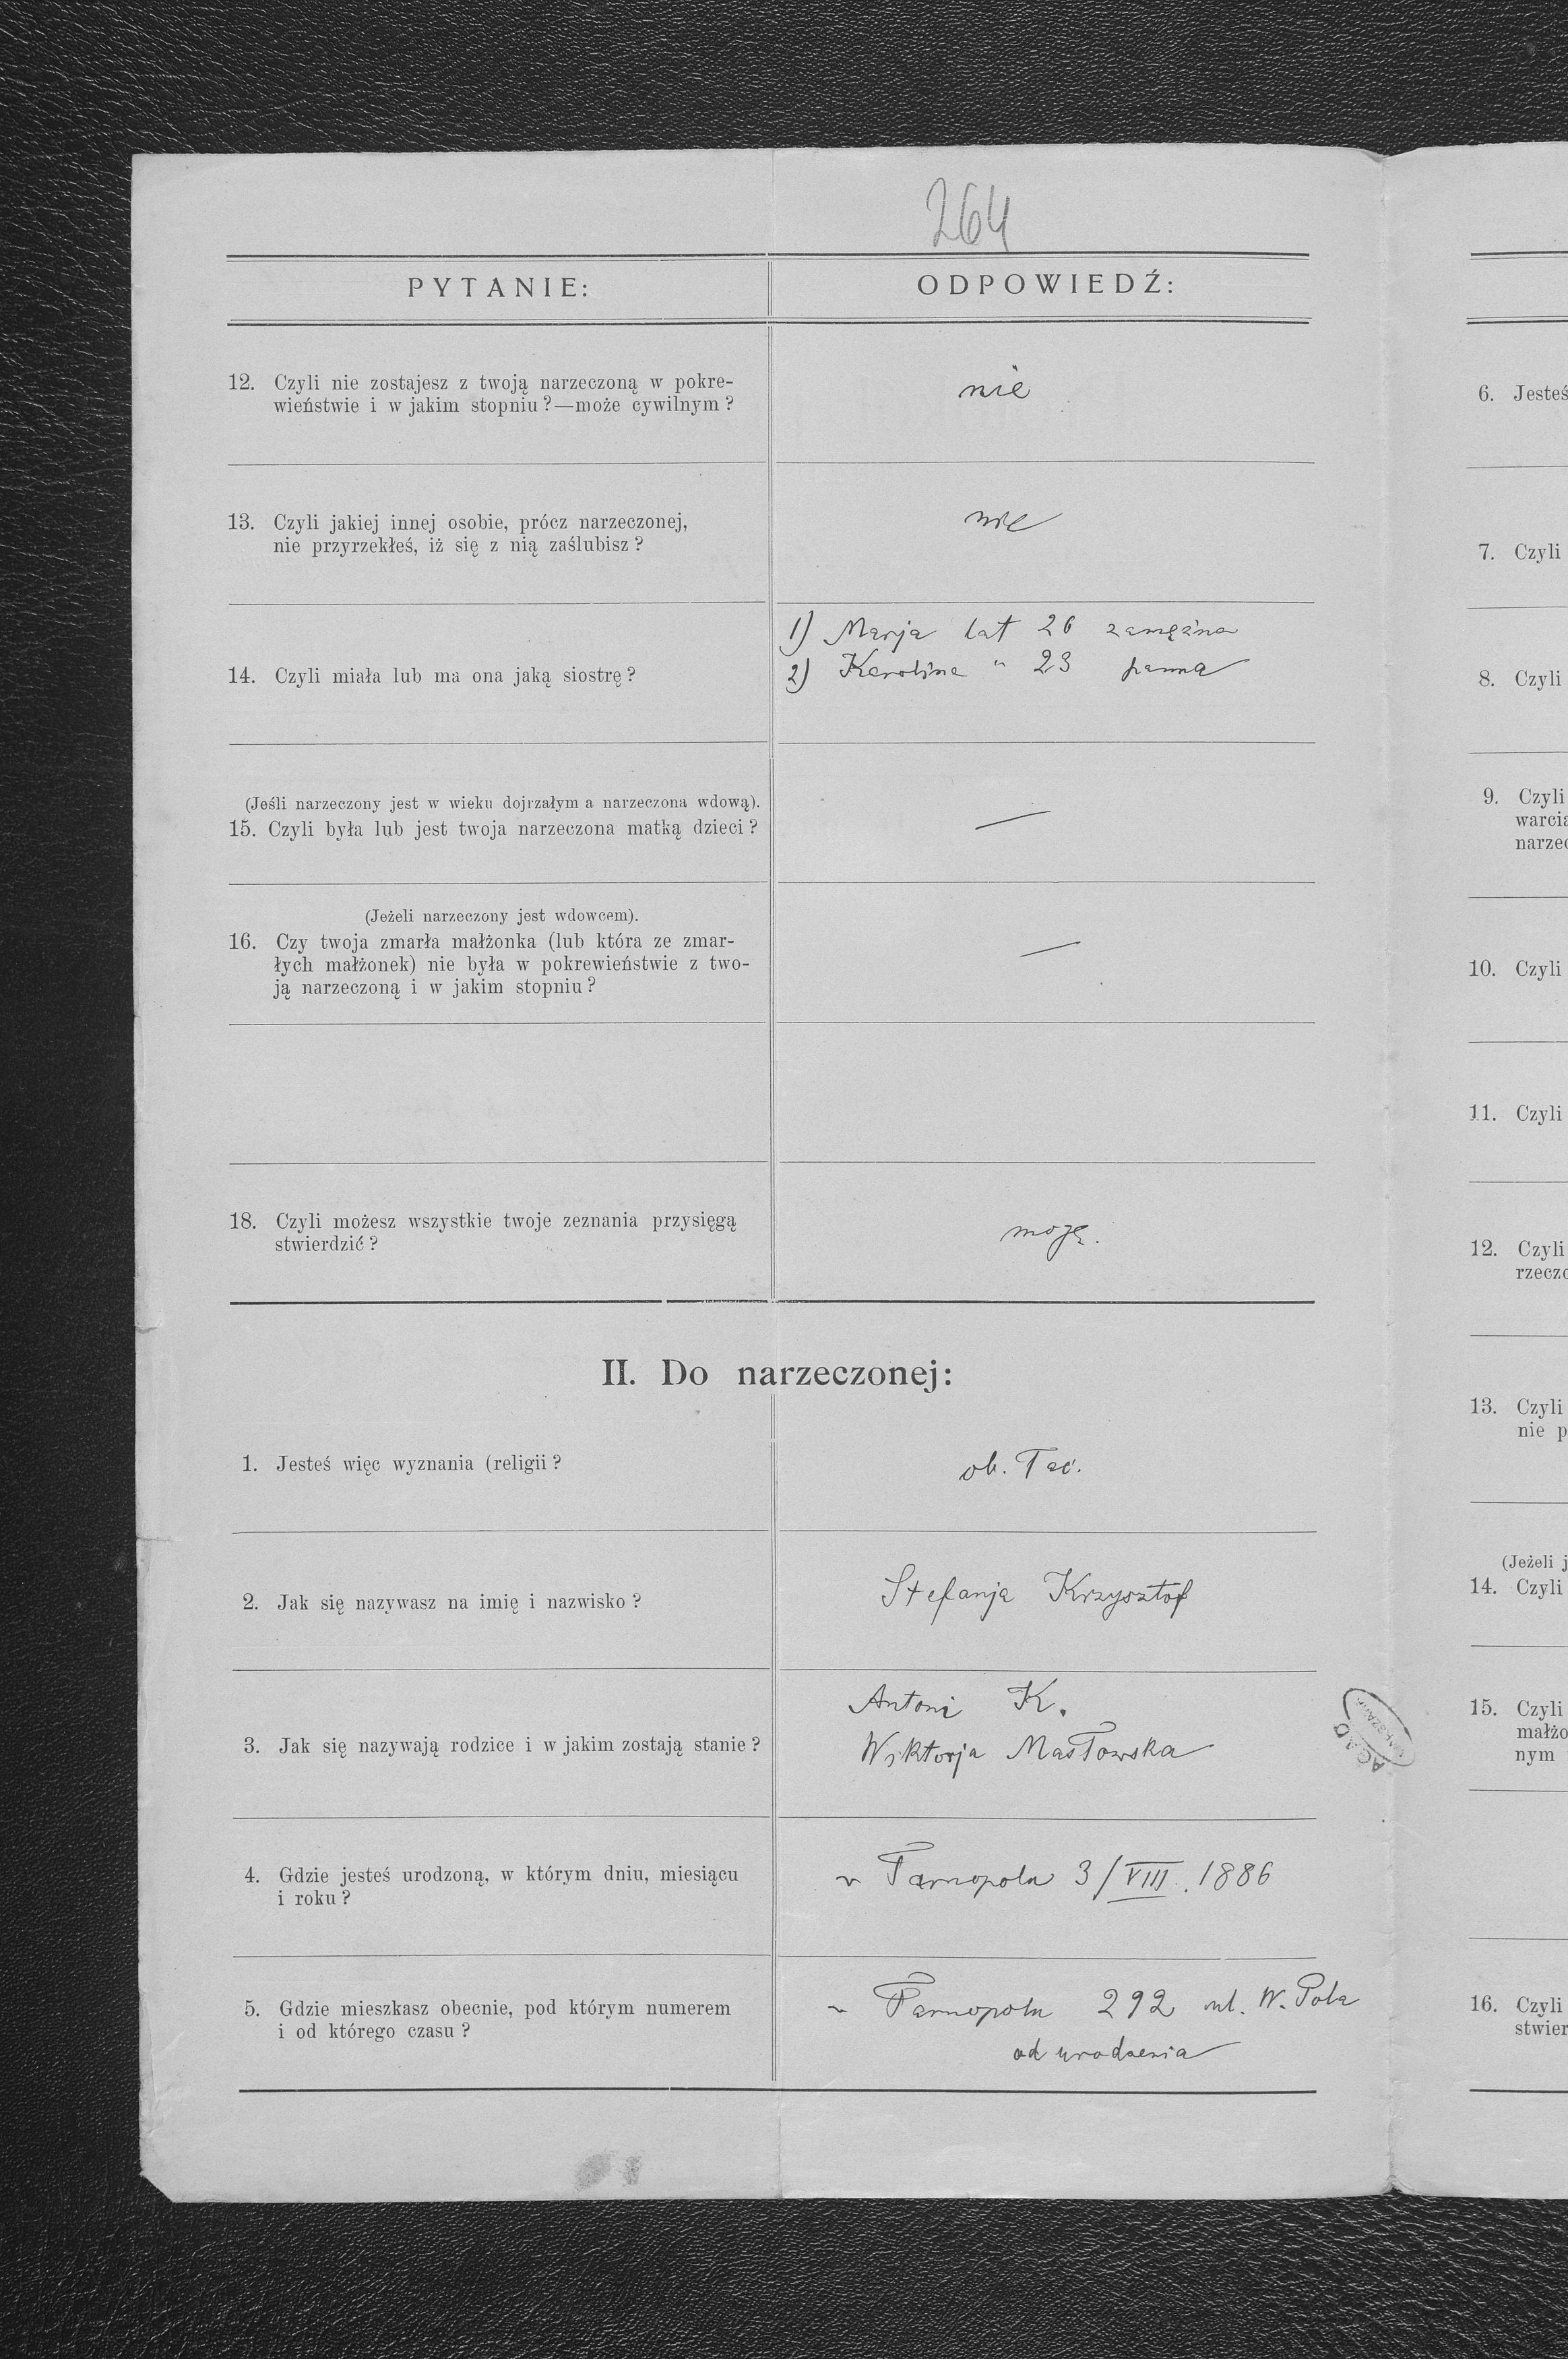 264
PYTANIE:
ODPOWIEDŹ:
12. Czyli nie zostajesz z twoją narzeczoną w pokre-
wieństwie i w jakim stopniu?—może cywilnym?
nie
13. Czyli jakiej innej osobie, prócz narzeczonej,
nie przyrzekłeś, iż się z nią zaślubisz?
nie
14. Czyli miała lub ma ona jaką siostrę?
1) Marja lat 26 zamężna
2) Karolina " 23 panna
(Jeśli narzeczony jest w wieku dojrzałym a narzeczona wdową).
15. Czyli była lub jest twoja narzeczona matką dzieci?
—
(Jeżeli narzeczony jest wdowcem).
16. Czy twoja zmarła małżonka (lub która ze zmar-
łych małżonek) nie była w pokrewieństwie z two-
ją narzeczoną i w jakim stopniu?
—
18. Czyli możesz wszystkie twoje zeznania przysięgą
stwierdzić?
mogę.
II. Do narzeczonej:
1. Jesteś więc wyznania (religii?
ob. łac.
2. Jak się nazywasz na imię i nazwisko?
Stefanja Krzysztof
3. Jak się nazywają rodzice i w jakim zostają stanie?
Antoni K.
Wiktorja Masłowska
4. Gdzie jesteś urodzoną, w którym dniu, miesiącu
i roku?
w Tarnopolu 3/VIII. 1886
5. Gdzie mieszkasz obecnie, pod którym numerem
i od którego czasu?
w Tarnopolu 292 ul. W. Pola
od urodzenia
AGAD
6. Jesteś
7. Czyli
8. Czyli
9. Czyli
warcia
narzec
10. Czyli
11. Czyli
12. Czyli
rzeczo
13. Czyli
nie p
(Jeżeli j
14. Czyli
15. Czyli
małżo
nym
16. Czyli
stwier